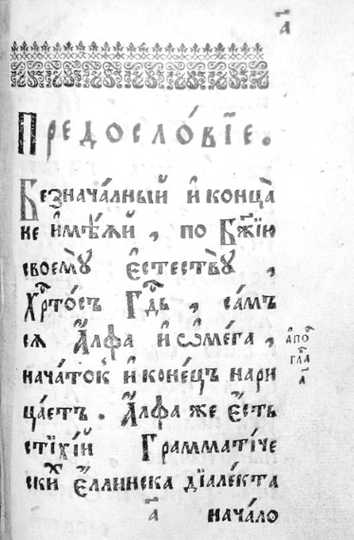 а҃
Предосло́вїе.
Безнача́лный и҆ конца̀
не и҆мѣ́ѧй , по Бж҃їю
своемꙋ̀ є҆стествꙋ̀ ,
Хрⷭ҇тосъ Гдⷭ҇ь , са́мъ
сѧ А҆́лфа и҆ ѡ҆ме́га ,
нача́токъ и҆ коне́цъ нари
ца́етъ . А҆́лфа же є҆́сть
стїхі́й Граммати́че
скихъ Є҆́ллинска дїале́кта
а҃
нача́ло
апоⷦ҇
гла
а҃